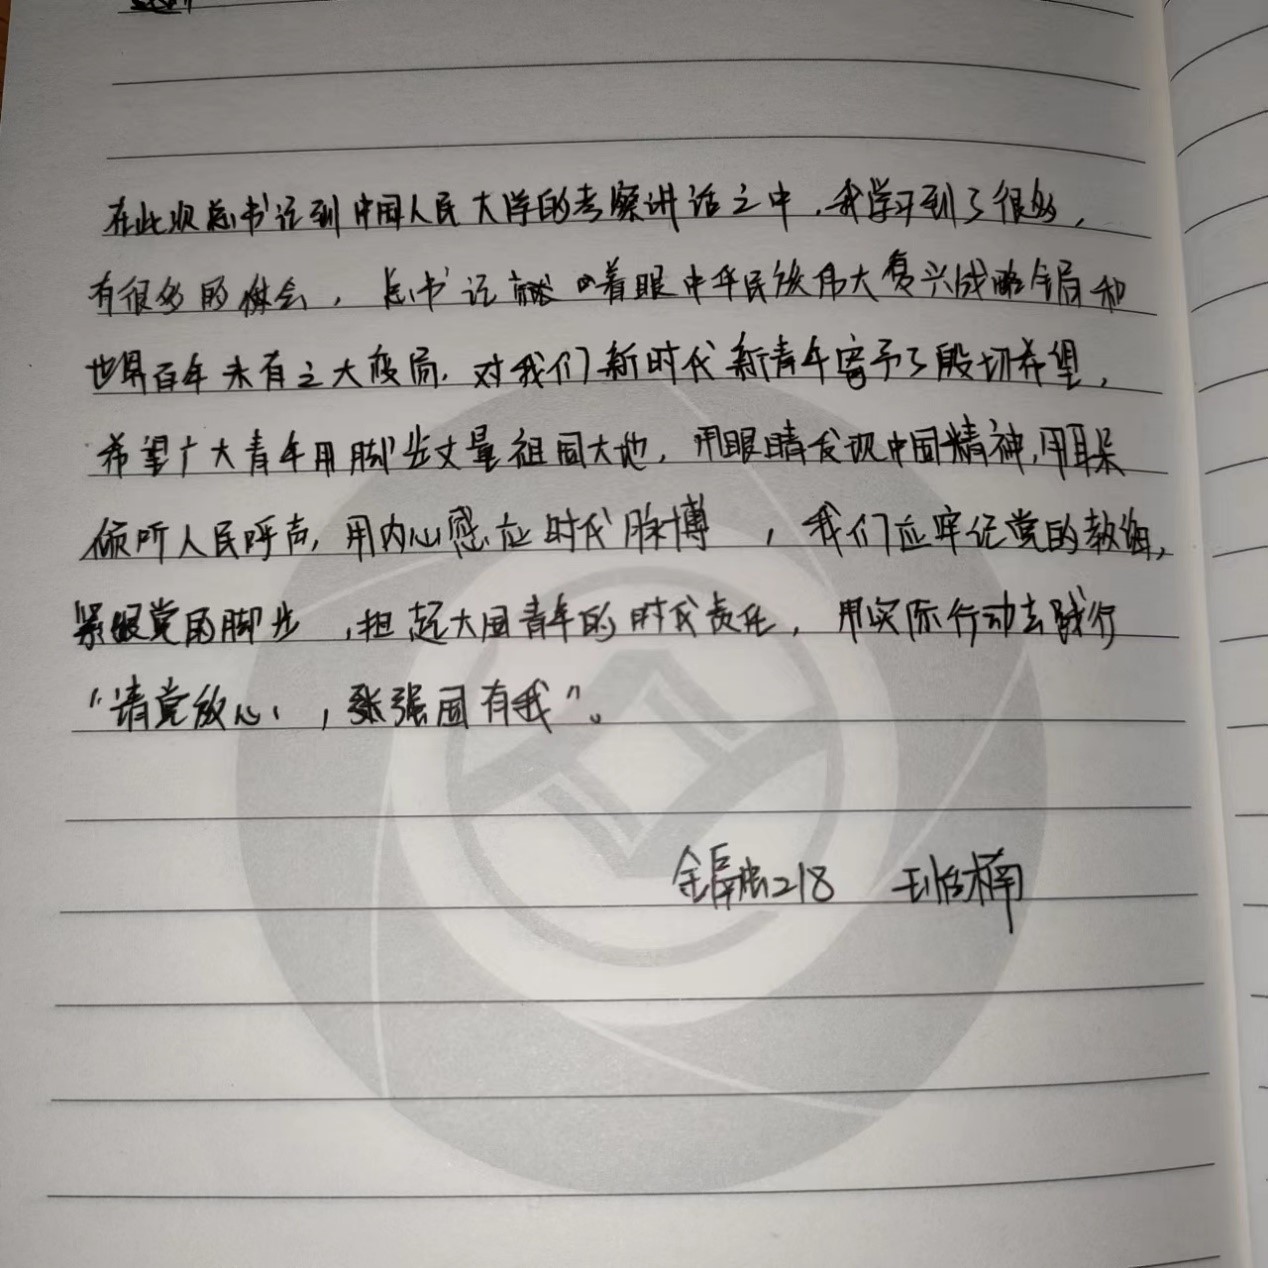 在此次总书记到中国人民大学的考察讲话之中,我学习到了很多,
有很多的体会,总书记着眼中华民族伟大复兴战略全局和
世界百年未有之大变局,对我们新时代新青年寄予了殷切希望,
希望广大青年用脚步丈量祖国大地,用眼睛发现中国精神,用耳朵
倾听人民呼声,用内心感应时代脉搏,我们应牢记党的教诲,
紧跟党的脚步,担起大国青年的时代责任,用实际行动去践行
“请党放心,强国有我”。
218